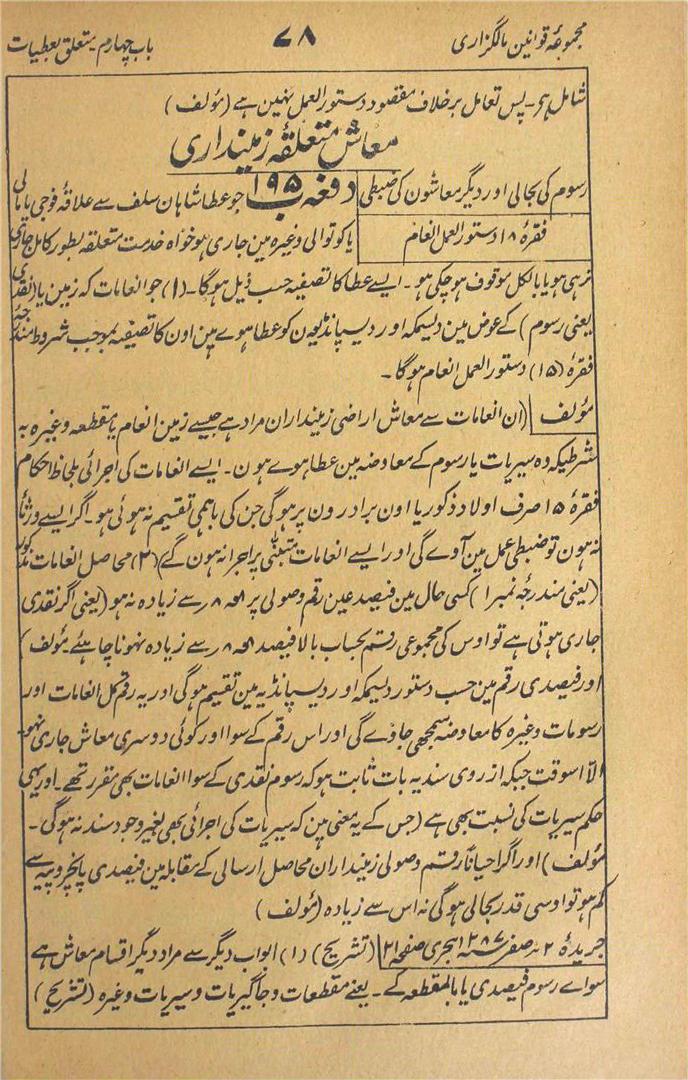 مجموعۂ قوانین مالگزاری
۷۸
باب چہارم متعلق بعطیات
شامل ہر۔ پس تعامل برخلاف مقصود دستور العمل نہین ہے (مؤلف)
معاش متعلقۂ زمینداری
رسوم کی بحالی اور دیگر معاشون کی ضبطی
فقرۂ ۱۸ دستور العمل انعام
دفعہ ۱۹۵ جو عطا شاہان سلف سے علاقۂ فوجی یا مالی
یا کوتوالی وغیرہ مین جاری ہو خواہ خدمت متعلقہ بطور کامل جاری
نرہی ہو یا بالکل موقوف ہو چکی ہو۔ ایسے عطا کا تصفیہ حسب ذیل ہوگا۔ (۱) جو انعامات کہ زمین یا (نقدی
یعنی رسوم) کے عوض مین دیسمکہ اور دیسپانڈیون کو عطا ہوے ہین اون کا تصفیہ بموجب شروط مندرجۂ
فقرۂ (۱۵) دستور العمل انعام ہوگا۔
مؤلف (ان انعامات سے معاش اراضی زمینداران مراد ہے جیسے زمین انعام یا مقطعہ وغیرہ بہ
شرطیکہ وہ سیریات یا رسوم کے معاوضہ مین عطا ہوے ہون۔ ایسے انعامات کی اجرائی بلحاظ احکام
فقرۂ ۱۵ صرف اولاد ذکور یا اون برادرون پر ہوگی جن کی باہمی تقسیم نہ ہوئی ہو۔ اگر ایسے ورثا
نہ ہون تو ضبطی عمل مین آوے گی اور ایسے انعامات متبنّی پر اجرا نہ ہون گے) (۲) محاصل انعامات مذکور
(یعنی مندرجہ نمبر ۱) کسی حال مین فیصد عین رقم وصولی پر سے زیادہ نہ ہو (یعنی اگر نقدی
جاری ہوتی ہے تو اوس کی مجموعی رقم بحساب بالا فیصد سے زیادہ نہونا چاہئے مؤلف)
اور فیصدی رقم مین حسب دستور دیسمکہ اور دیسپانڈیہ مین تقسیم ہوگی اور یہ رقم کل انعامات اور
رسومات وغیرہ کا معاوضہ سمجھی جاوے گی اور اس رقم کے سوا اور کوئی دوسری معاش جاری نہو۔
الّا اسوقت جبکہ از روی سند یہ بات ثابت ہو کہ رسوم نقدی کے سوا انعامات بھی مقرر تھے۔ اور یہی
حکم سیریات کی نسبت بھی ہے (جس کے یہ معنی ہین کہ سیریات کی اجرائی بھی بغیر وجود سند نہ ہوگی۔
مؤلف) اور اگر احیاناً رقم وصولی زمینداران محاصل ارسالی کے مقابلہ مین فیصدی پانچ روپیہ سے
کم ہو تو اوسی قدر بحالی ہوگی نہ اس سے زیادہ (مؤلف)
جریدۂ ۲ صفر سنہ ۱۲۸۷ ہجری صفحہ ۱۲ (تشریح) (۱) ابواب دیگر سے مراد دیگر اقسام معاش ہے
سواے رسوم فیصدی یا بالمقطعہ کے۔ یعنے مقطعات و جاگیریات و سیریات وغیرہ (تشریح)